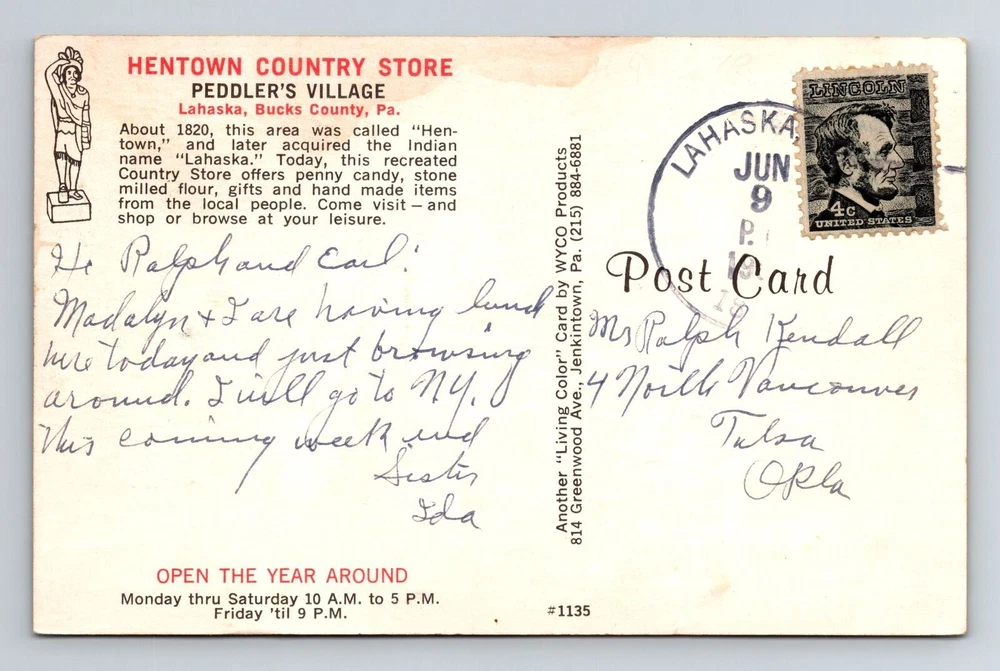 HENTOWN COUNTRY STORE
PEDDLER'S VILLAGE
Lahaska, Bucks County, Pa.
About 1820, this area was called "Hen-
town," and later acquired the Indian
name "Lahaska." Today, this recreated
Country Store offers penny candy, stone
milled flour, gifts and hand made items
from the local people. Come visit — and
shop or browse at your leisure.
Hi Ralph and Earl:
Madalyn & I are having lunch
here today and just browsing
around. I will go to N.Y.
this coming week end
Sister
Ida
OPEN THE YEAR AROUND
Monday thru Saturday 10 A.M. to 5 P.M.
Friday 'til 9 P.M.
Another "Living Color" Card by WYCO Products
814 Greenwood Ave., Jenkintown, Pa. (215) 884-6881
#1135
LAHASKA,
JUN
9
P.
19
LINCOLN
4c
UNITED STATES
Post Card
Mrs Ralph Kendall
4 North Vancouver
Tulsa
Okla